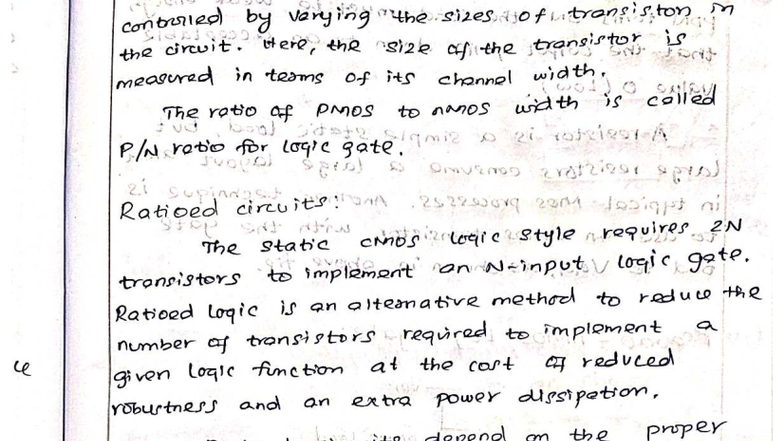 controlled by varying the sizes of transistor in
the circuit. Here, the size of the transistor is
measured in teams of its channel width.
The ratio of PMOS to nMOS width is called
P/N ratio for logic gate.
Ratioed circuits:
The static CMOS logic style requires 2N
transistors to implement an N-input logic gate.
Ratioed Logic is an alternative method to reduce the
number of transistors required to implement a
given logic function at the cost of reduced
robustness and an extra power dissipation.
depend on the proper